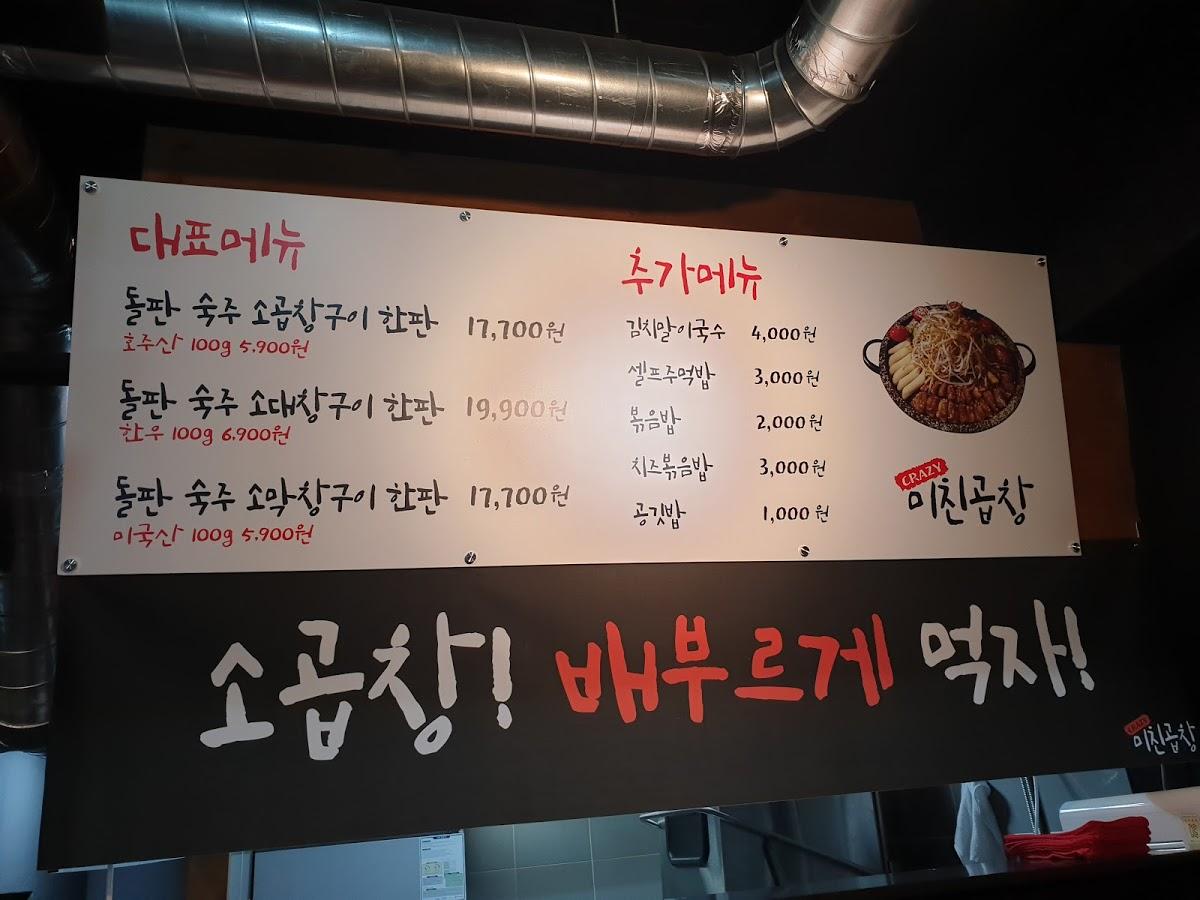 대표메뉴
돌판 숙주 소곱창구이 한판 17,700원
호주산 100g 5.900원
돌판 숙주 소대창구이 한판 19,900원
한우 100g 6.900원
돌판 숙주 소막창구이 한판 17,700원
미국산 100g 5.900원
추가메뉴
김치말이국수 4,000원
셀프주먹밥 3,000원
볶음밥 2,000원
치즈볶음밥 3,000원
공깃밥 1,000원
CRAZY
미친곱창
소곱창! 배부르게 먹자!
CRAZY
미친곱창